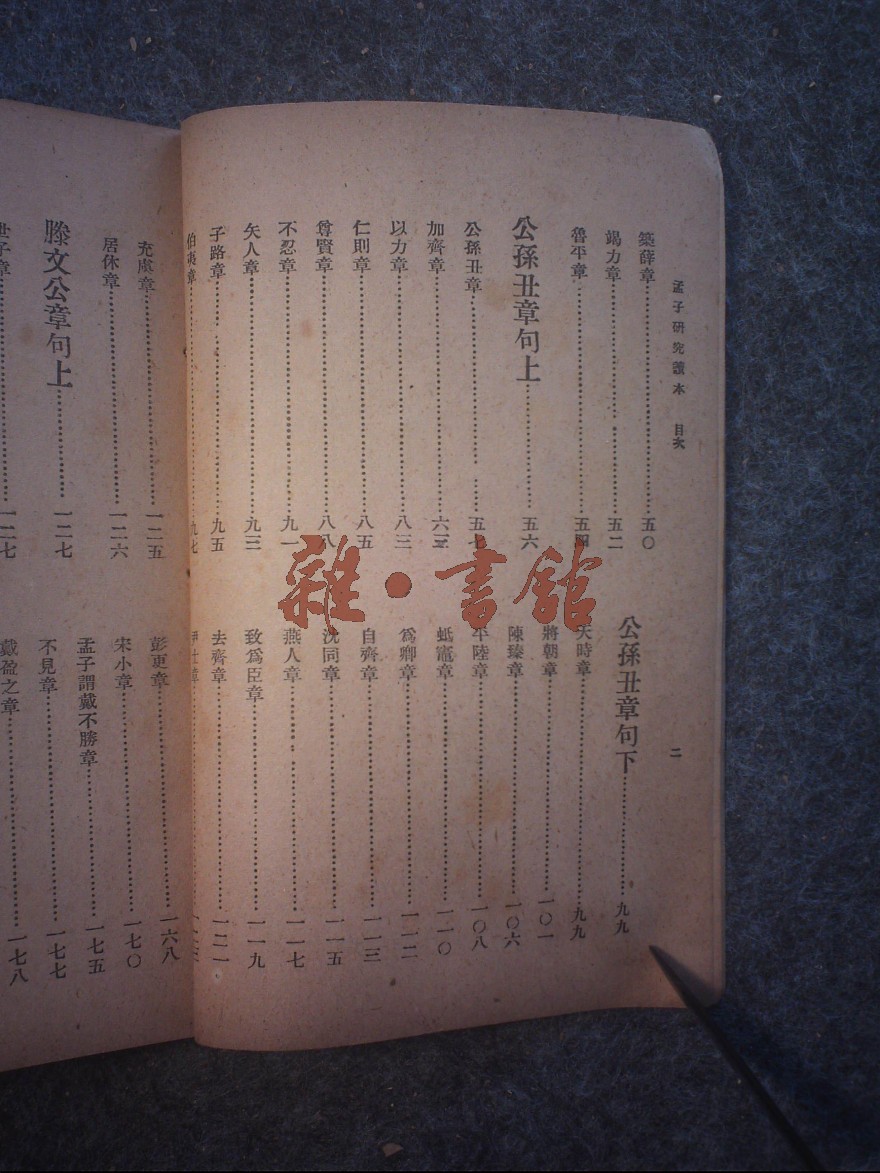 孟子研究讀本 目次 二
築薛章 五〇
竭力章 五二
魯平章 五四
公孫丑章句上 五六
公孫丑章 五七
加齊章 六三
以力章 八三
仁則章 八五
尊賢章 八八
不忍章 九一
矢人章 九三
子路章 九五
伯夷章 九七
公孫丑章句下 九九
天時章 九九
將朝章 一〇一
陳臻章 一〇六
平陸章 一〇八
蚳鼃章 一一〇
爲卿章 一一二
自齊章 一一三
沈同章 一一五
燕人章 一一七
致爲臣章 一一九
去齊章 一二一
尹士章
充虞章 一二五
居休章 一二六
滕文公章句上 一二七
世子章 一二七
彭更章 一六八
宋小章 一七〇
孟子謂戴不勝章 一七五
不見章 一七七
戴盈之章 一七八
雜·書館